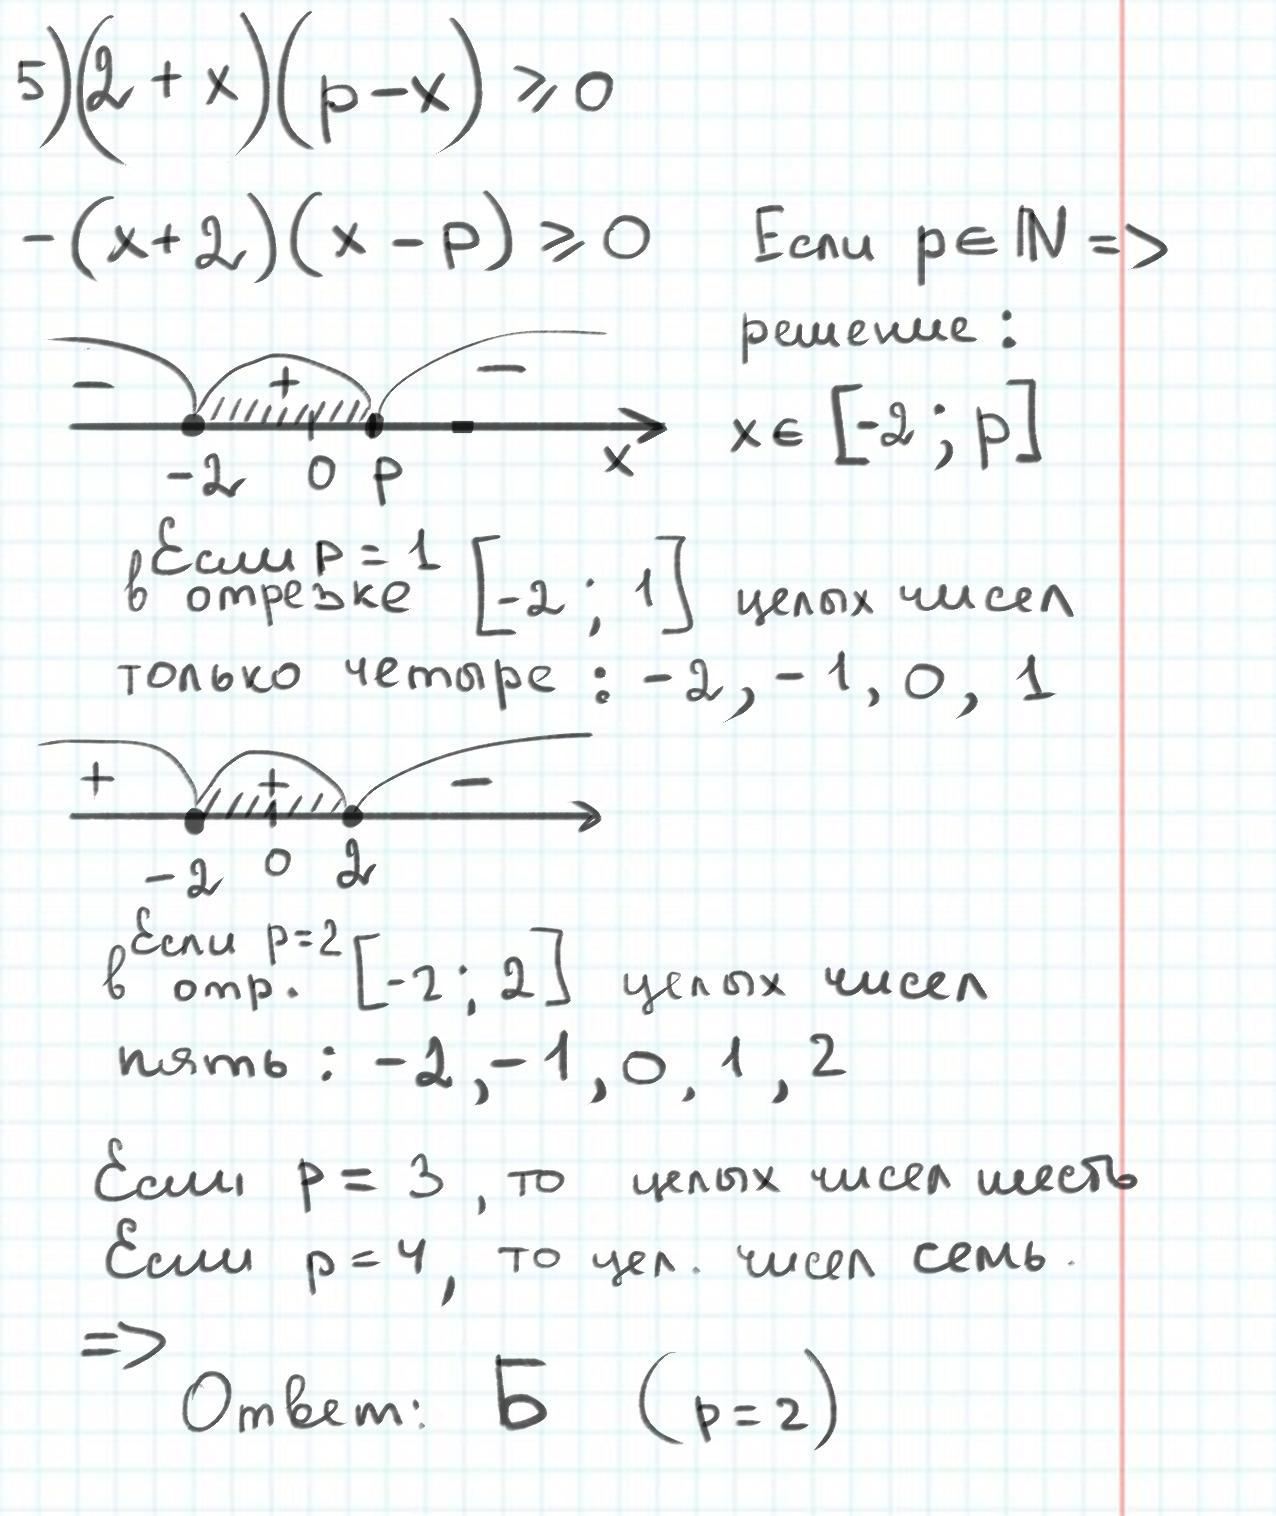 5) (2 + x)(p - x) ⩾ 0
-(x+2)(x - p) ⩾ 0 Если p ∈ ℕ =>
решение :
x ∈ [-2 ; p]
- + -
-2 0 p x
Если p = 1
в отрезке [-2 ; 1] целых чисел
только четыре : -2, -1, 0, 1
+ + -
-2 0 2
Если p=2
в отр. [-2 ; 2] целых чисел
пять : -2, -1, 0, 1, 2
Если p = 3, то целых чисел шесть
Если p = 4, то цел. чисел семь.
=>
Ответ: Б (p = 2)